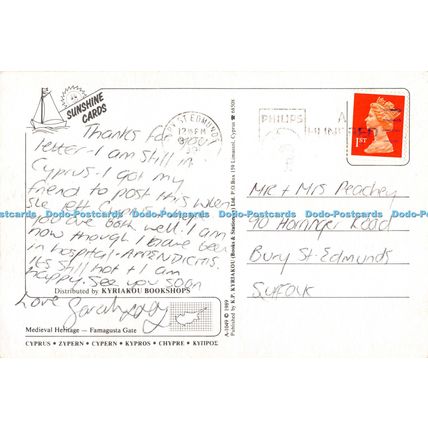 SUNSHINE
CARDS
Thanks for your
letter. I am still in
Cyprus. I got my
friend to post this when
she left
you are both well. I am
now though I have been
in hospital - APPENDICITIS.
It's still hot & I am
happy. See you soon
Love Sarah
Distributed by KYRIAKOU BOOKSHOPS
Medieval Heritage — Famagusta Gate
CYPRUS • ZYPERN • CYPERN • KYPROS • CHYPRE • ΚΥΠΡΟΣ
A-1049 © 1989
Published by K.P. KYRIAKOU (Books & Stationery) Ltd. P.O.Box 159 Limassol, Cyprus ☎ 68508
ST EDMUNDS
PHILIPS
1ST
Mr + Mrs Peachey
90 Horringer Road
Bury St. Edmunds
SUFFOLK
Dodo-Postcards Dodo-Postcards Dodo-Postcards Dodo-Postcards Dodo-Postcards